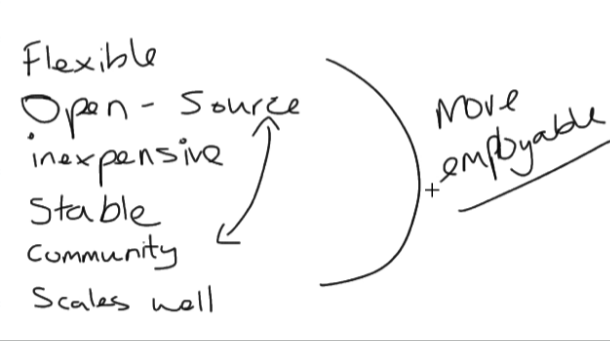 Flexible
Open - Source
inexpensive
Stable
Community
Scales well
More
employable